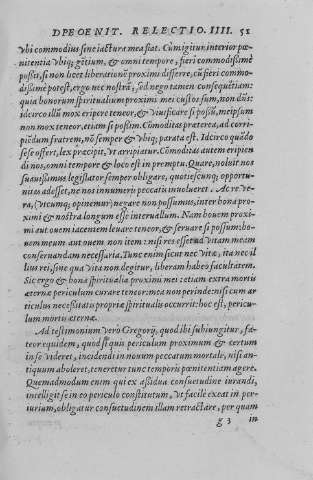 DE POENIT. RELECTIO. IIII. 51
vbi commodius sine iactura mea fiat. Cùm igitur interior pœ-
nitentia vbiq; gitium, & omni tempore, fieri commodissimè
possit, si non licet liberationē proximi differre, cū fieri commo-
dissimè potest, ergo nec nostrā, sed nego tamen consequētiam:
quia bonorum spiritualium proximi mei custos sum, non dñs:
idcirco illū mox eripere teneor, & viuificare si possū, meipsum
non mox teneor, etiam si possim. Cōmoditas præterea, ad corri-
piēdum fratrem, nō semper & vbiq; parata est. Idcirco quādo
se se offert, lex præcipit, vt arripiatur. Cōmoditas autem eripien
di nos, omni tempore & loco est in promptu. Quare, noluit nos
suauissimus legislator semper obligare, quotiescunq; opportu-
nitas adesset, ne nos innumeri peccatis inuolueret. Ac re ve-
ra, (vtcumq; opinemur) negare non possumus, inter bona proxi-
mi & nostra longum esse interuallum. Nam bouem proxi-
mi aut ouem iacentem leuare teneor, & seruare si possum: bo-
uem meum aut ouem non item: nisi res esset ad vitam meam
conseruandam necessaria. Tunc enim sicut nec vitæ, ita nec il
lius rei, sine qua vita non degitur, liberam habeo facultatem.
Sic ergo & bona spiritualia proximi mei: etiam extra mortis
æternæ periculum curare teneor: mea non perinde: nisi cum ar
ticulus necessitatis propriæ spiritualis occurrit: hoc est, pericu-
lum mortis æternæ.
Ad testimonium verò Gregorij, quod ibi subiungitur, fa-
teor equidem, quod si quis periculum proximum & certum
in se videret, incidendi in nouum peccatum mortale, nisi an-
tiquum aboleret, teneretur tunc temporis pœnitentiam agere.
Quemadmodum enim qui ex assidua consuetudine iurandi,
intelligit se in eo periculo constitutum, vt facilè exeat in per-
iurium, obligatur consuetudinem illam retractare, per quam
g 3 in